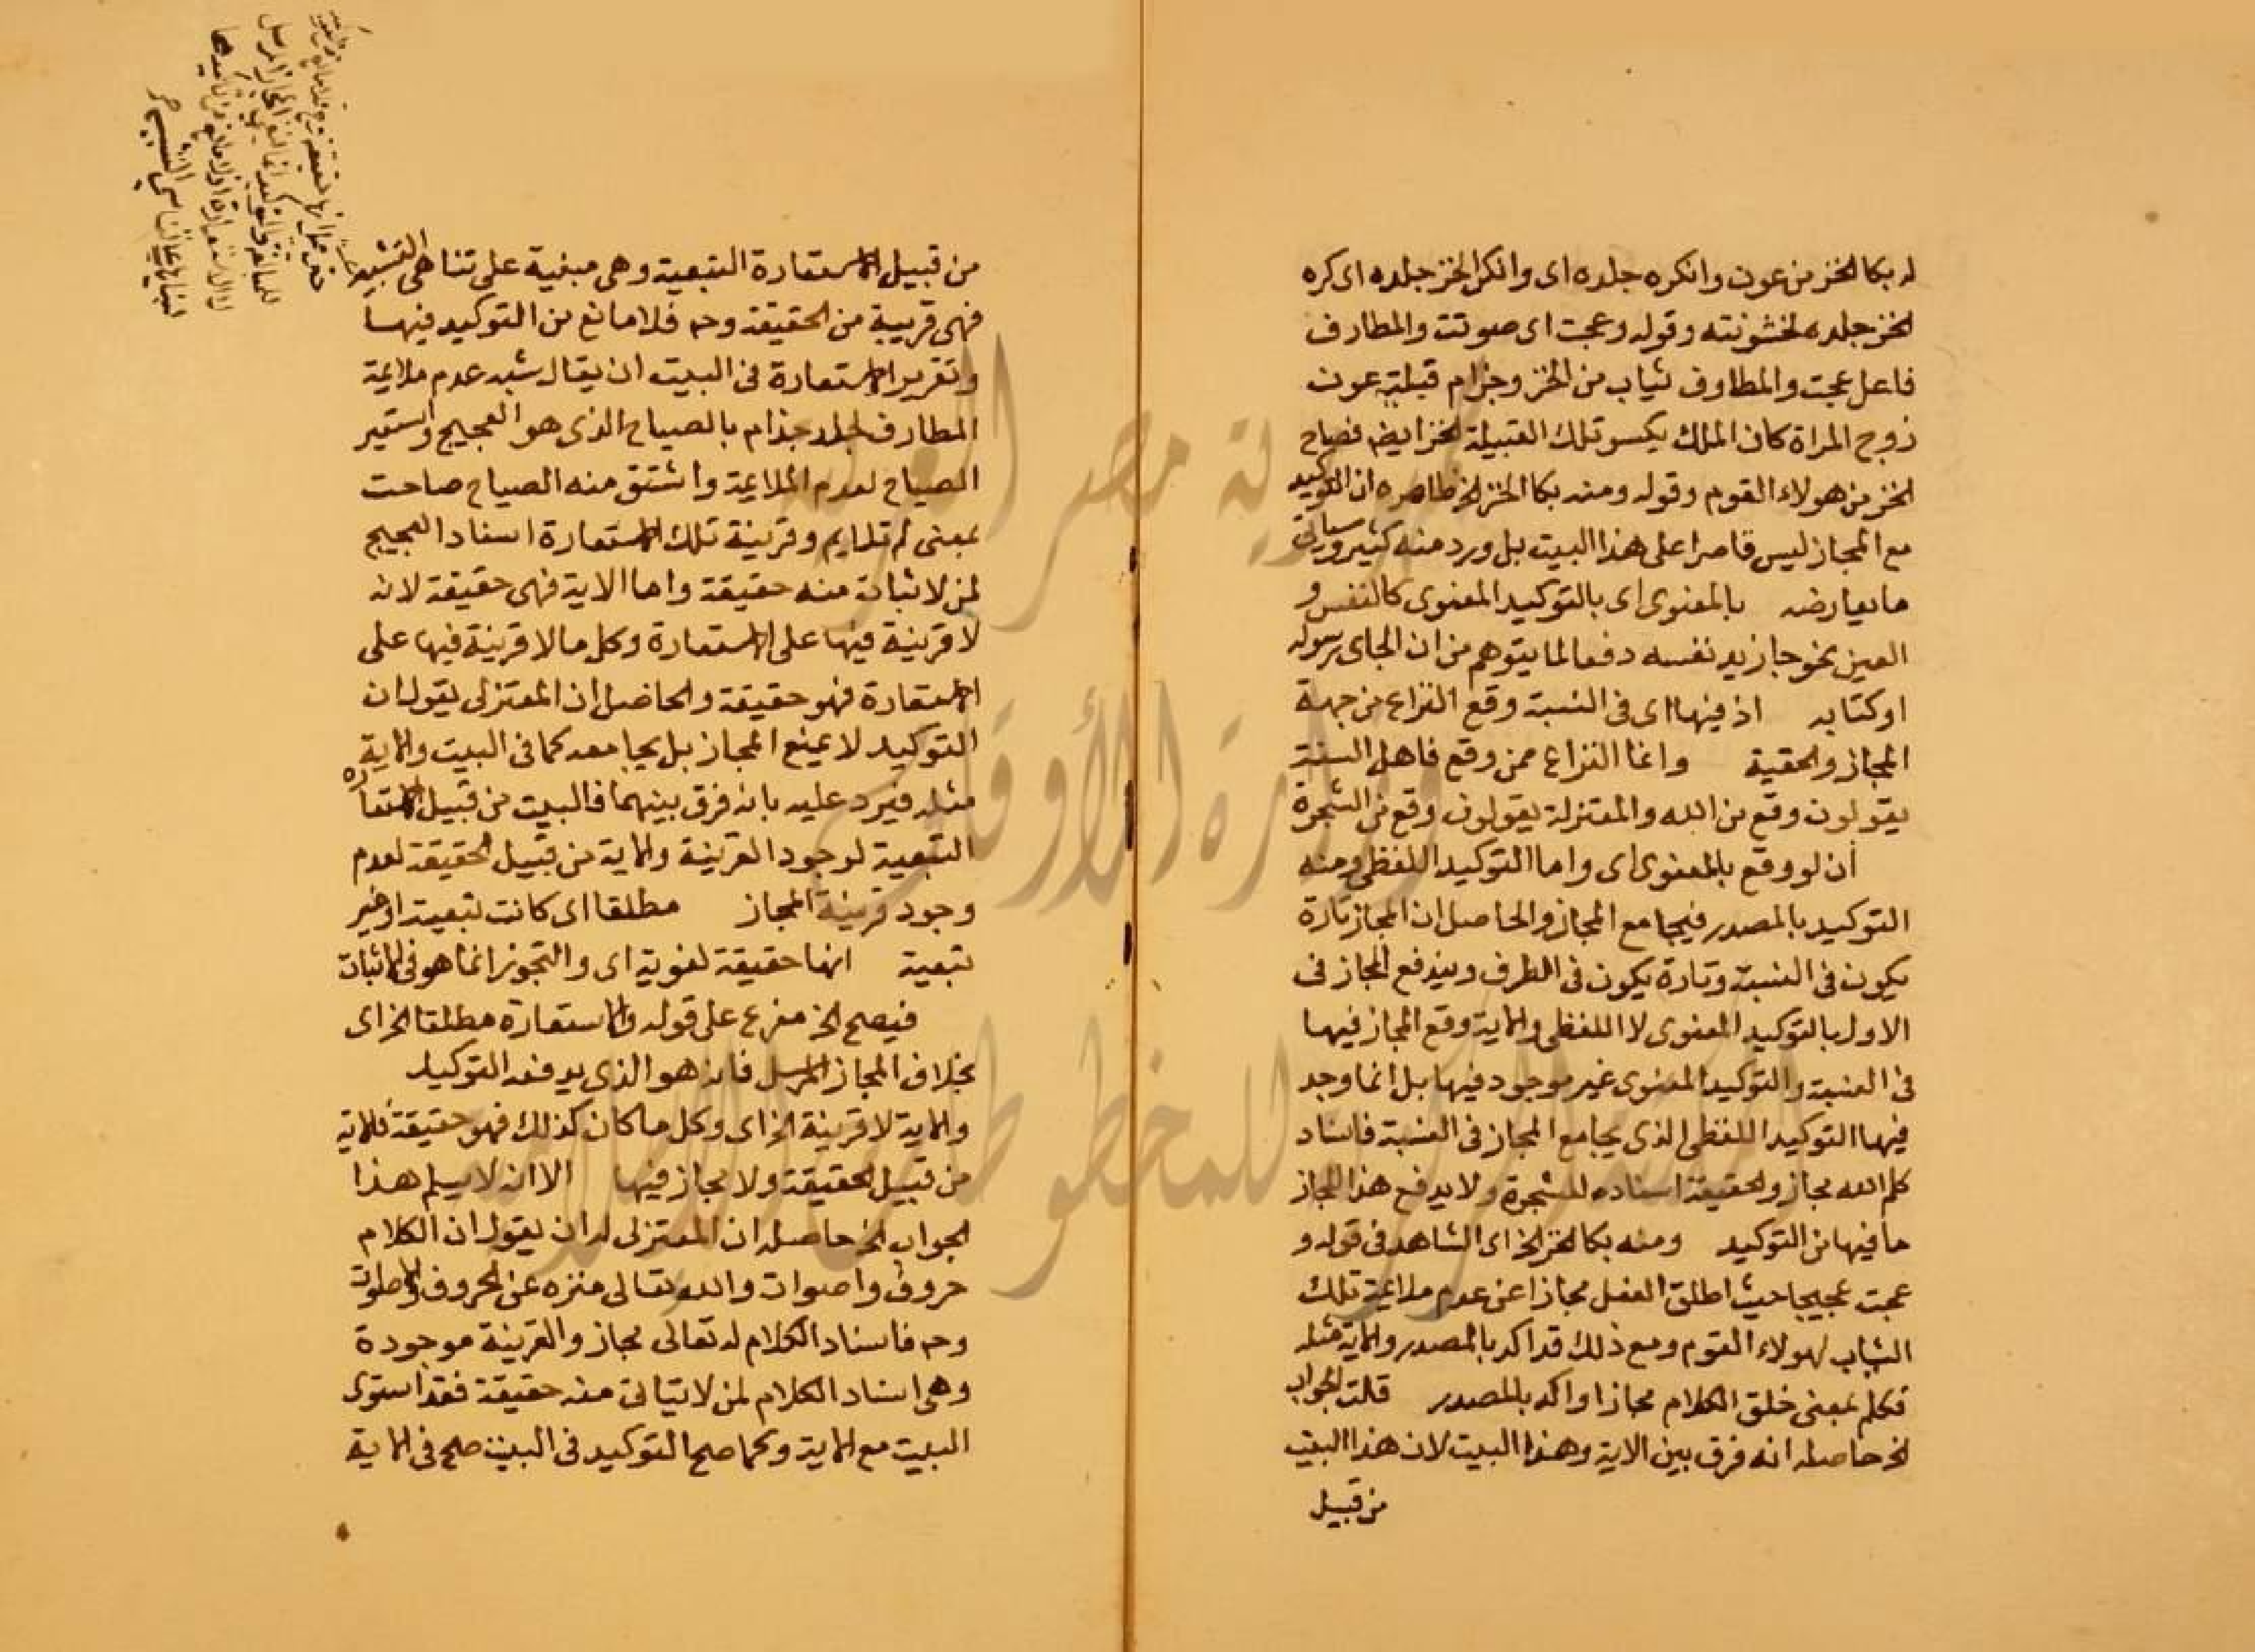 له بكا الخز من عوف وانكره جلده اى وانكر الخز جلده اى كره
الخز جلده لخشونته وقوله وعجت اى صوتت والمطارف
فاعل عجت والمطارف ثياب من الخز وجزام قبيلة عوف
زوج المراة كان الملك يكسو تلك القبيلة الخز ايضا فصاح
الخز من هولاء القوم وقوله ومنه بكا الخز الخ ظاهره ان التوكيد
مع المجاز ليس قاصرا على هذا البيت بل ورد منه كثير وسياتى
ما يعارضه بالمعنوى اى بالتوكيد المعنوى كالنفس و
العين نحو جا زيد نفسه دفعا لما يتوهم من ان الجاى رسوله
او كتابه اذ فيها اى فى النسبة وقع النزاع من جهة
المجاز والحقية وانما النزاع ممن وقع فاهل السنة
يقولون وقع من الله والمعتزلة يقولون وقع من الشجرة
ان لو وقع بالمعنوى اى واما التوكيد اللفظى ومنه
التوكيد بالمصدر فيجامع المجاز والحاصل ان المجاز تارة
يكون فى النسبة وتارة يكون فى الطرف ويندفع المجاز فى
الاول بالتوكيد المعنوى لا اللفظى والاية وقع المجاز فيها
فى النسبة والتوكيد المعنوى غير موجود فيها بل انما وجد
فيها التوكيد اللفظى الذى يجامع المجاز فى النسبة فاسناد
كلم الله مجاز والحقيقة اسناده للشجرة ولا يدفع هذا المجاز
ما فيها من التوكيد ومنه بكا الخز الخ اى الشاهد فى قوله و
عجت عجيجا حيث اطلق الفعل مجازا عن عدم ملايمة تلك
الثياب لهولاء القوم ومع ذلك قد اكد بالمصدر والاية مثله
فكلم بمعنى خلق الكلام مجازا واكد بالمصدر قلت الجواب
الخ حاصله انه فرق بين الاية وهذا البيت لان هذا البيت
من قبيل
من قبيل الاستعارة التبعية وهى مبنية على تناهى التشبيه
فهى قريبة من الحقيقة وح فلا مانع من التوكيد فيها
وتقرير الاستعارة فى البيت ان يقال شبه عدم ملايمة
المطارف لجلد جذام بالصياح الذى هو العجيج واستعير
الصياح لعدم الملايمة واشتق منه الصياح صاحت
بمعنى لم تلايم وقرينة تلك الاستعارة اسناد العجيج
لمن لا يتات منه حقيقة واما الاية فهى حقيقة لانه
لا قرينة فيها على الاستعارة وكل ما لا قرينة فيها على
الاستعارة فهو حقيقة والحاصل ان المعتزلى يقول ان
التوكيد لا يمنع المجاز بل يجامعه كما فى البيت والاية
مثله فيرد عليه بانه فرق بينهما فالبيت من قبيل الاستعارة
التبعية لوجود القرينة والاية من قبيل الحقيقة لعدم
وجود قرينة المجاز مطلقا اى كانت تبعية او غير
تبعية انها حقيقة لغوية اى والتجوز انما هو فى الاثبات
فيصح الخ مفرع على قوله والاستعارة مطلقا الخ اى
بخلاف المجاز المرسل فانه هو الذى يدفعه التوكيد
والاية لا قرينة الخ اى وكل ما كان كذلك فهو حقيقة فالاية
من قبيل الحقيقة ولا مجاز فيها الا انه لا يسلم هذا
الجواب الخ حاصله ان المعتزلى له ان يقول ان الكلام
حروف واصوات والله تعالى منزه عن الحروف والاصوات
وح فاسناد الكلام له تعالى مجاز والقرينة موجودة
وهى اسناد الكلام لمن لا يتاتى منه حقيقة فقد استوى
البيت مع الاية وكما صح التوكيد فى البيت صح فى الاية